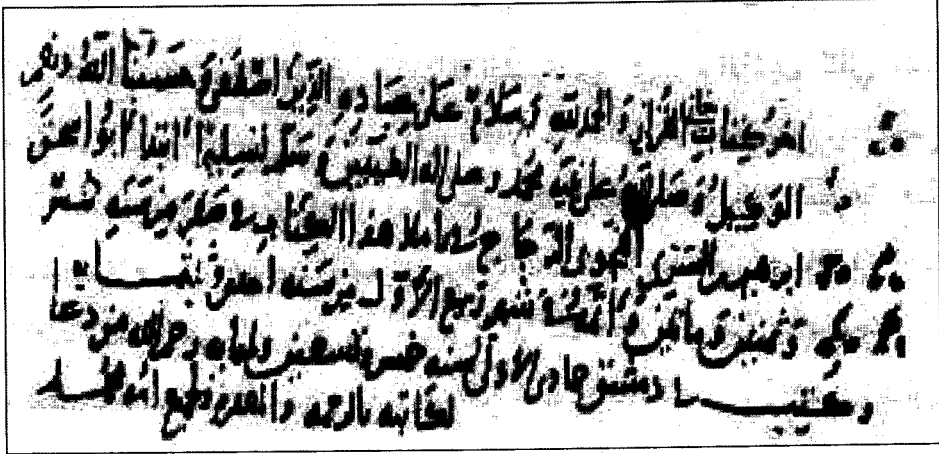 اخر كتاب معاني القرآن والحمد لله وسلام على عباده الذين اصطفى وحسبنا الله ونعم
الوكيل وصلى الله على نبيه محمد وعلى اله الطيبين وسلم تسليما ابتدا ابو اسحق
ابرهيم بن السري النحوي الزجاج باملا هذا الكتاب في صفر من سنه خمس
وثمنين ومائتين واتمه في شهر ربيع الاول من سنه احدى وثلثمايه
وكتب دمشق جمادى الاولى لسنه خمس وتسعين وثلثمايه ورحم الله من دعا
لكاتبه بالرحمه والمغفره ولجميع امة محمد